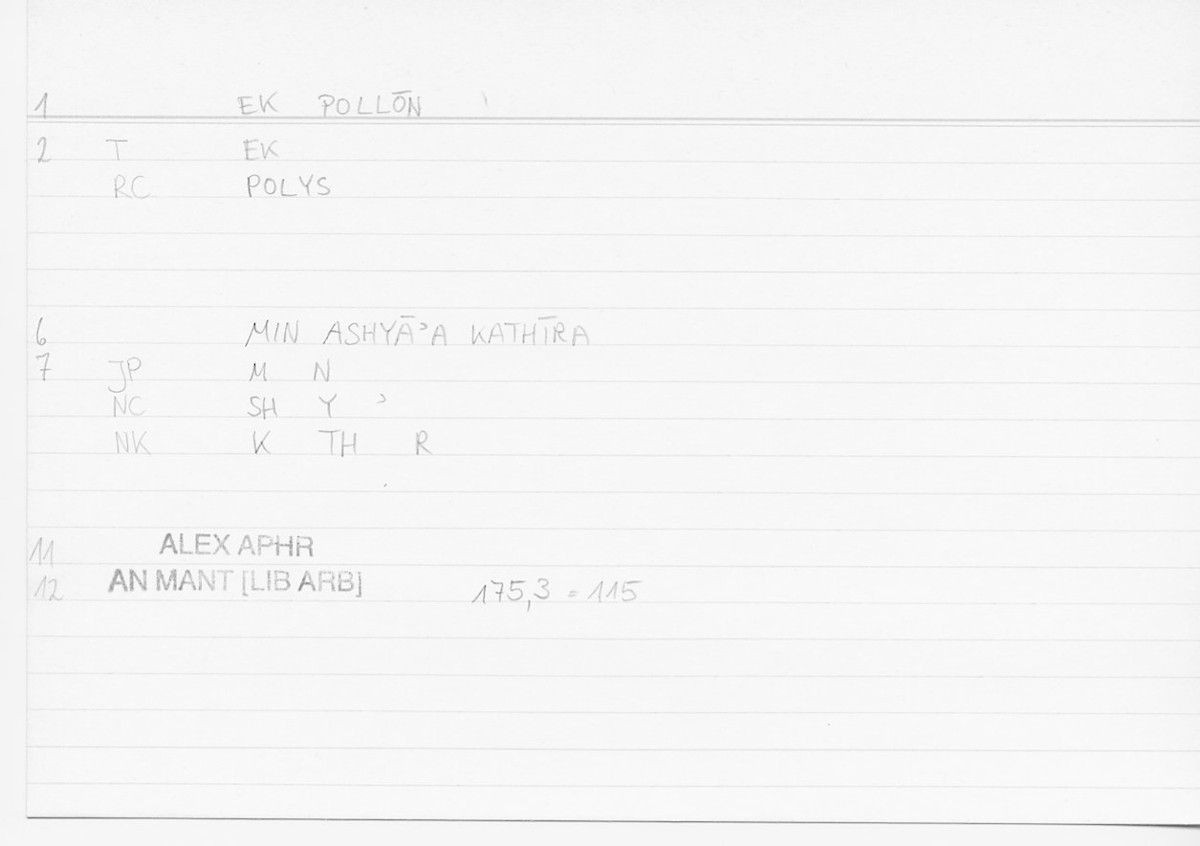 1 EK POLLŌN
2 T EK
RC POLYS
6 MIN ASHYĀʾA KATHĪRA
7 JP M N
NC SH Y ʾ
NK K TH R
11 ALEX APHR
12 AN MANT [LIB ARB] 175,3 = 115